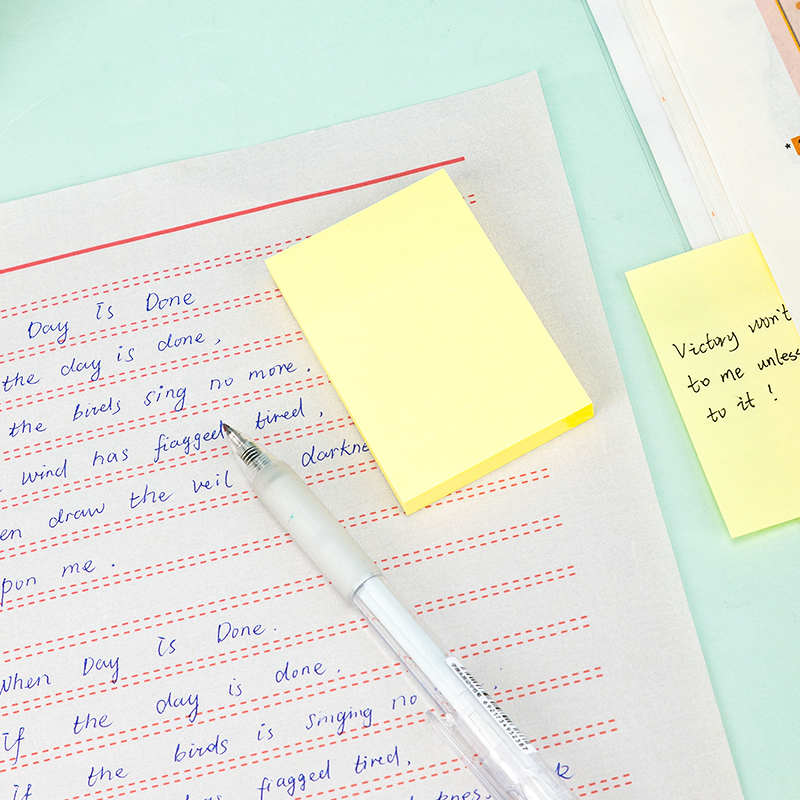 Day is Done
the day is done,
the birds sing no more.
wind has fiagged tired,
en draw the veil darkne
pon me.
When Day is Done.
If the day is done.
if the birds is singing no
has fiagged tired.
Victory won't
to me unless
to it!